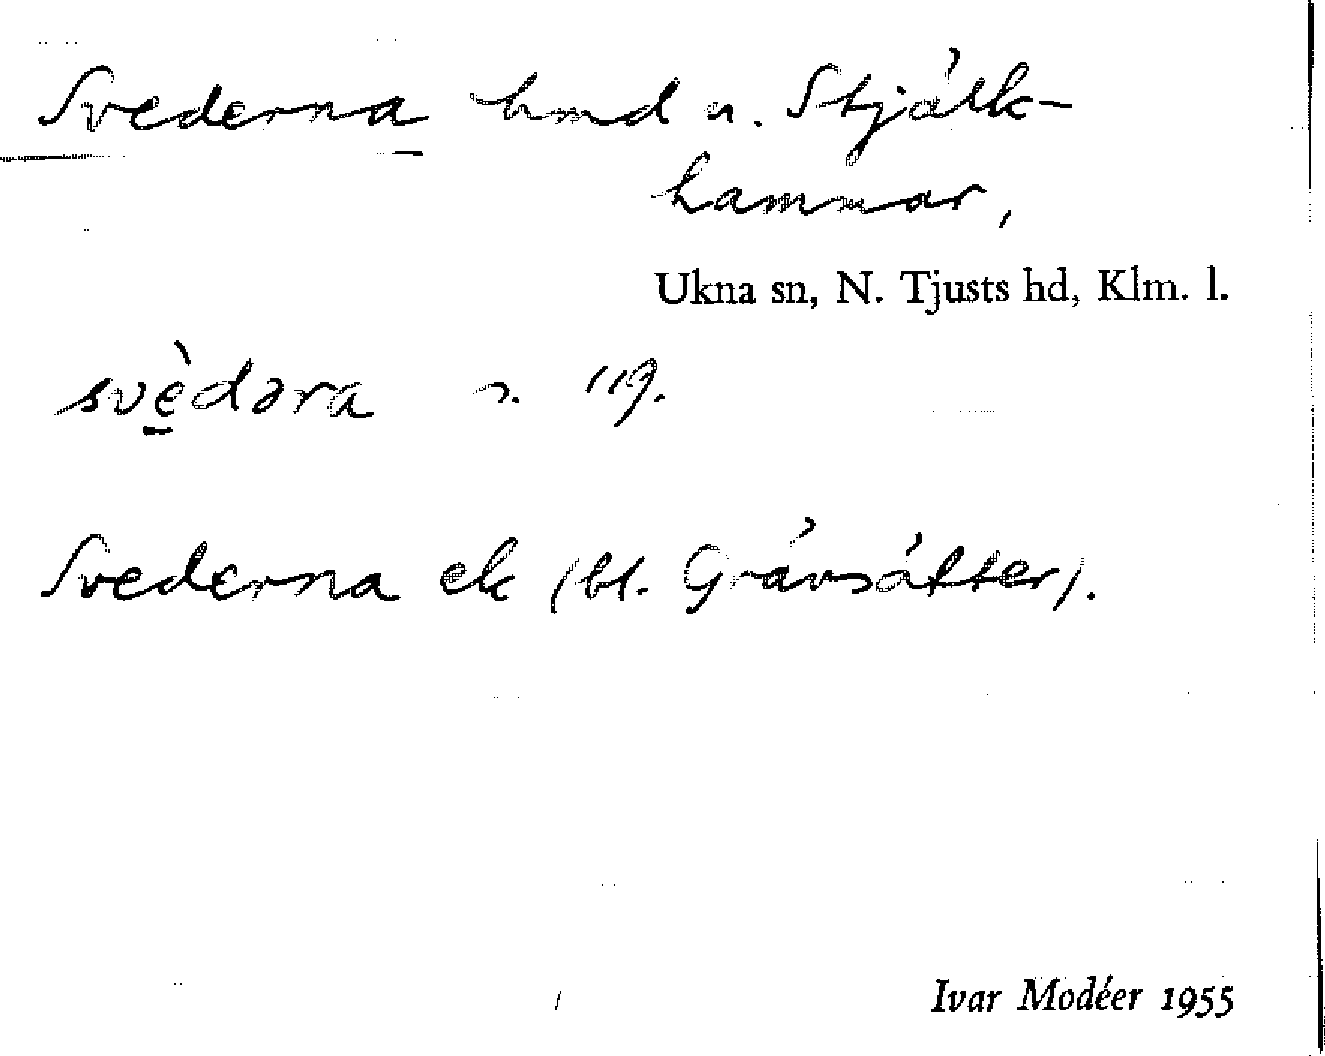 Svederna hmd u. Stjälk-
hammar,
Ukna sn, N. Tjusts hd, Klm. l.
svèdəra n. 119.
Svederna ek (bl. Grävsätter).
Ivar Modéer 1955